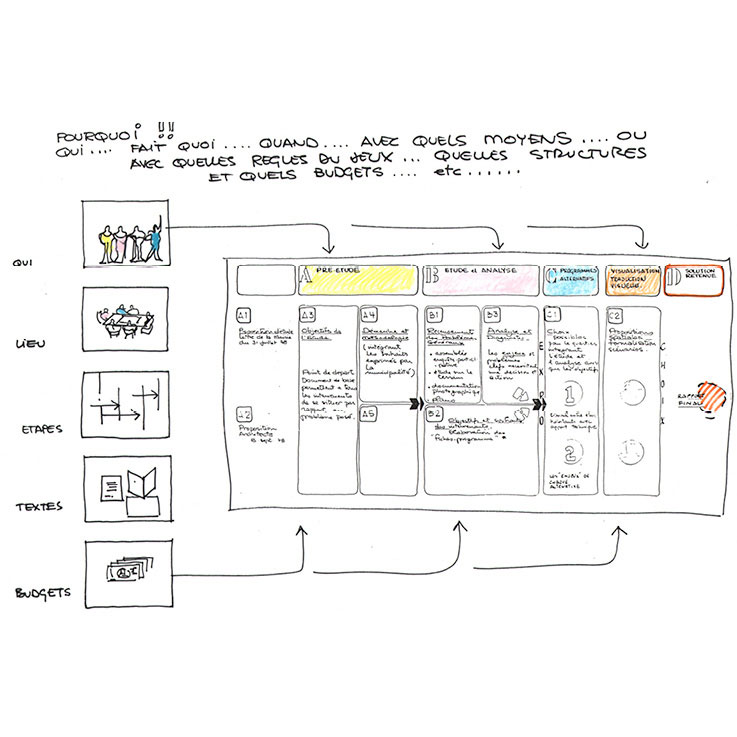 POURQUOI !!
QUI.... FAIT QUOI .... QUAND.... AVEC QUELS MOYENS .... OU
AVEC QUELLES REGLES DU JEUX ... QUELLES STRUCTURES
ET QUELS BUDGETS .... etc ......
QUI
LIEU
ETAPES
TEXTES
BUDGETS
A PRE-ETUDE
B ETUDE et ANALYSE
C PROGRAMMES
ALTERNATIFS
VISUALISATION
TRADUCTION
VISUELLE
D SOLUTION
RETENUE
A1
A2
Proposition
Architecte
A3
Objectifs de
l'Etude
Point de depart
Document de base
permettant a tous
les intervenants
de se situer par
rapport au
problème posé.
A4
Domaine et
méthodologie
(intégrant
les souhaits
exprimés par
la
municipalité)
A5
B1
Recensement
des Problèmes
• enquête
• étude sur le
terrain
• documentation
photographique
B2
Objectifs et
des intervenants.
Elaboration des
"Fiches-programme" *
B3
Analyse et
Diagnostic
C1
Choix
possibles
integrant
l'Etude et
l'Analyse ainsi
que les objectifs
1
2
C2
Propositions
spatiales
formalisation
scénarios
CHOIX
RAPPORT
FINAL